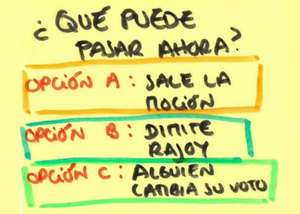 ¿QUÉ PUEDE
PASAR AHORA?
OPCIÓN A: SALE LA
MOCIÓN
OPCIÓN B: DIMITE
RAJOY
OPCIÓN C: ALGUIEN
CAMBIA SU VOTO